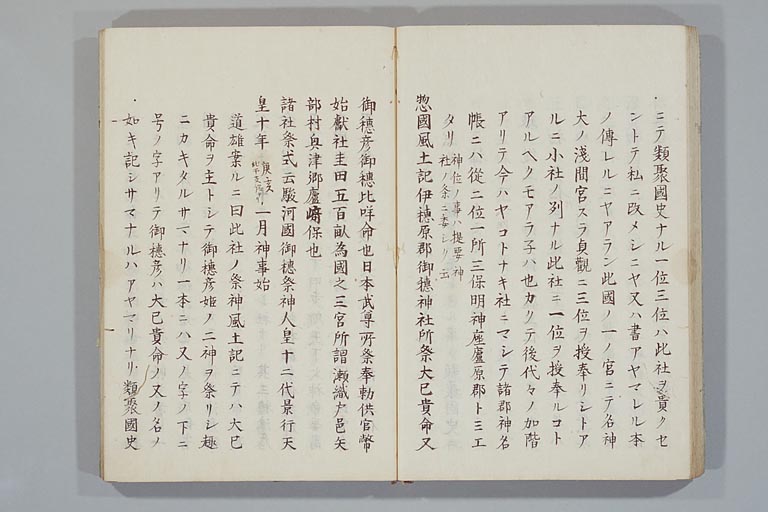 ニテ類聚國史ナル一位三位ハ此社ヲ貴クセ
ントテ私ニ改メシニヤ又ハ書アヤマレル本
ノ傳レルニヤアラン此國ノ一ノ宮ニテ名神
大ノ淺間宮スラ貞觀ニ三位ヲ授奉リシトア
ルニ小社ノ列ナル此社ニ一位ヲ授奉ルコト
アルヘクモアラ子ハ也カリテ後代々ノ加階
アリテ今ハヤコトナキ社ニマシテ諸郡神名
帳ニハ從二位一所三保明神座廬原郡トミエ
タリ
神位ノ事ハ提要神
社ノ条ニ委シリ云
惣國風土記伊穗原郡御穗神社所祭大已貴命又
御穗彦御穗比咩命也日本武尊所祭奉勅供官幣
始獻社圭田五百畝為國之三宮所謂瀬織戸邑矢
部村奥津郷廬崎保也
諸社祭式云駿河國御穗祭神人皇十二代景行天
皇十年
庚辰
一月神事始
道雄案ルニ曰此社ノ祭神風土記ニテハ大已
貴命ヲ主トシテ御穗彦姫ノ二神ヲ祭リシ趣
ニカキタルサマナリ一本ニハ又ノ字ノ下ニ
号ノ字アリテ御穗彦ハ大已貴命ノ又ノ名ノ
如キ記シサマナルハアヤマリナリ類聚國史